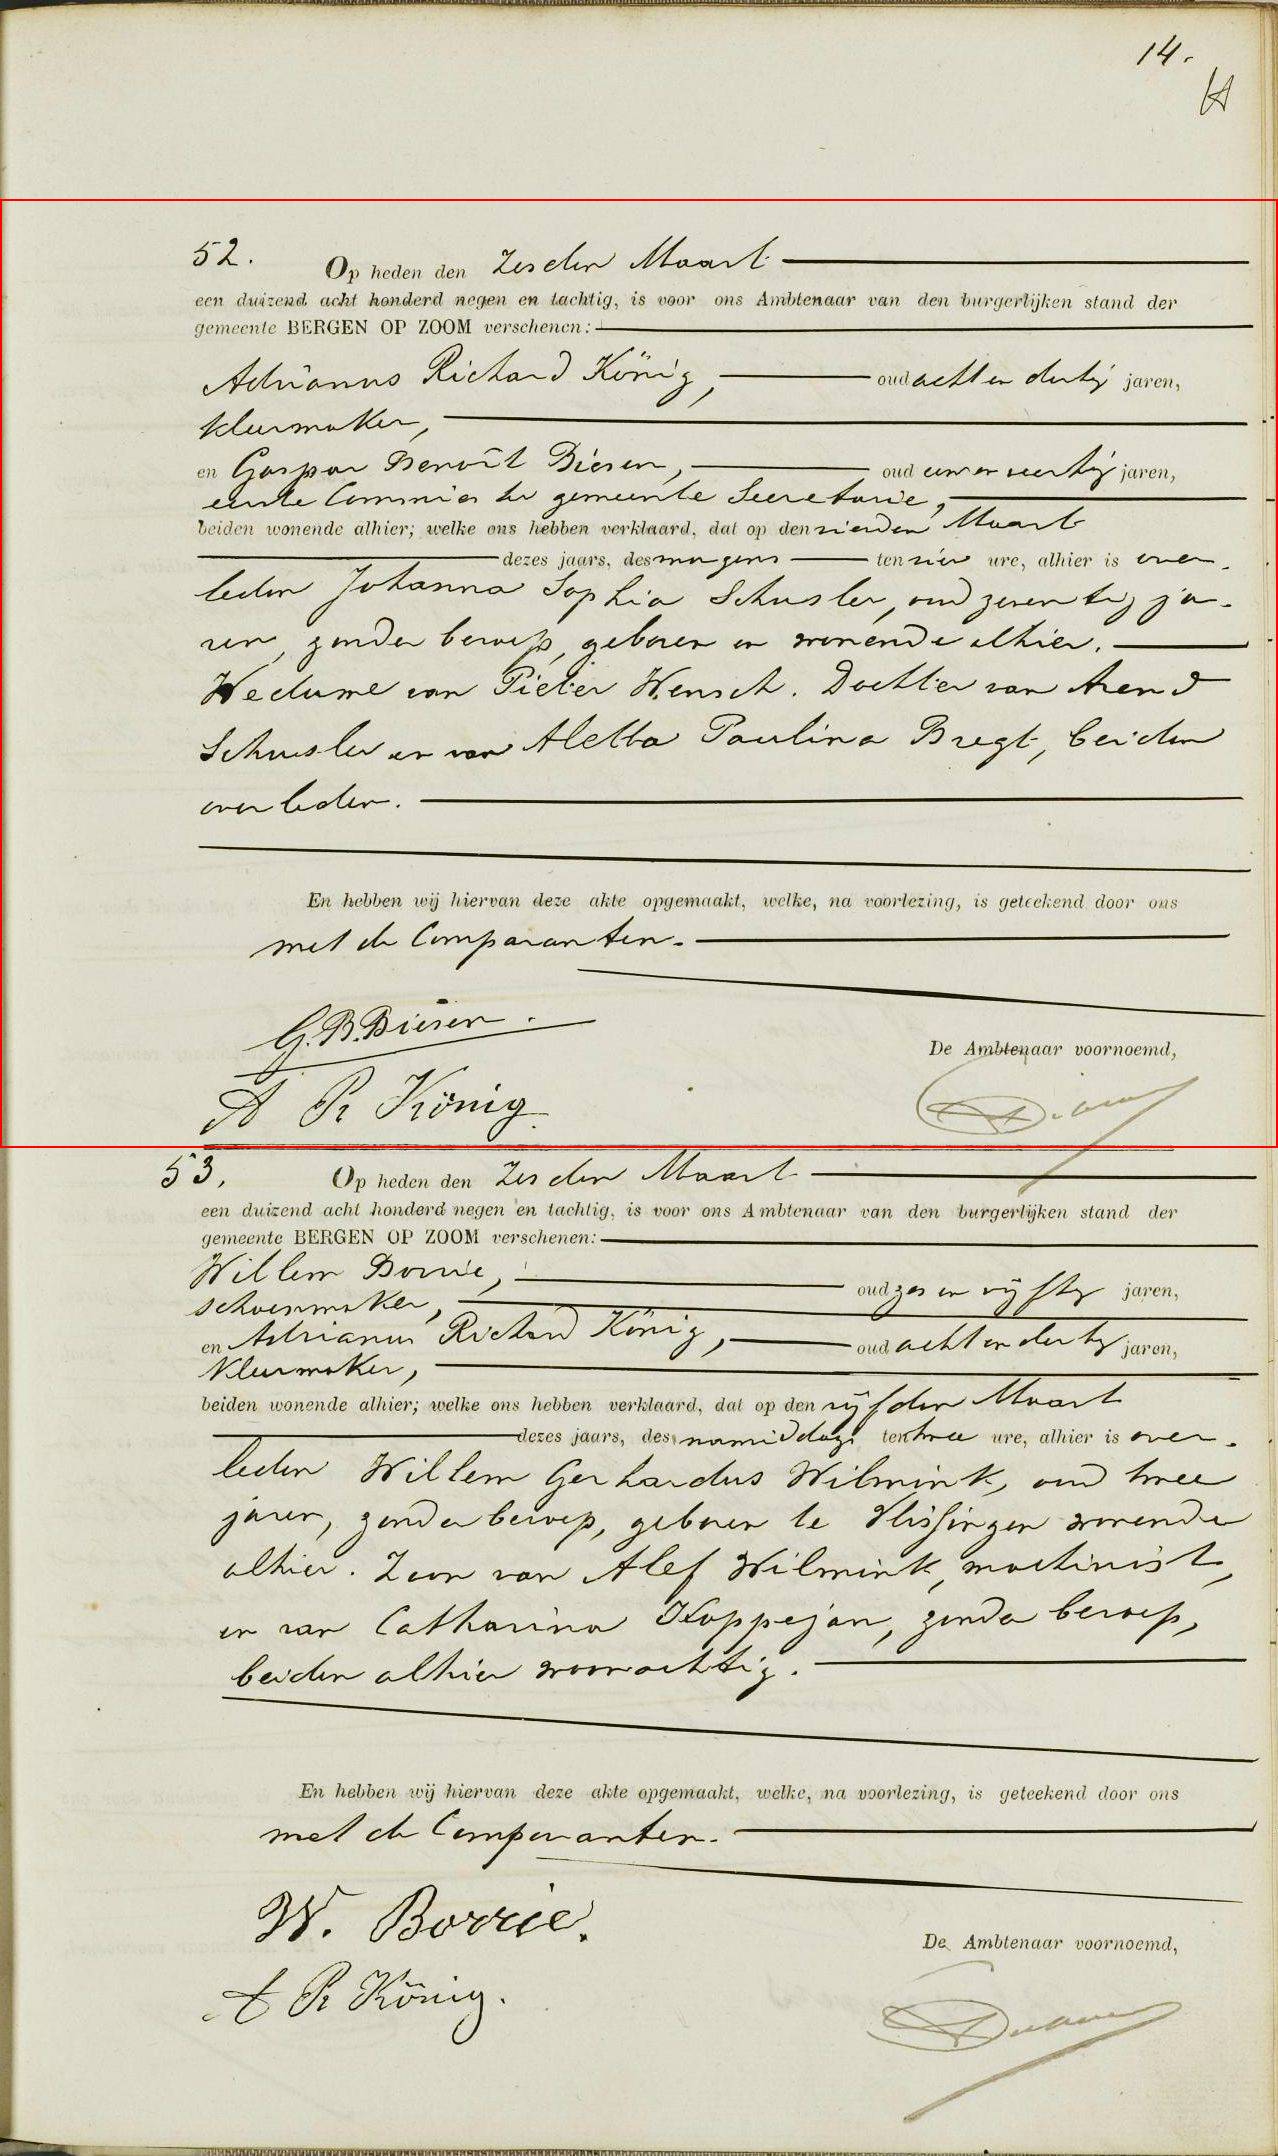 14.
52. Op heden den Zesden Maart
een duizend acht honderd negen en tachtig, is voor ons Ambtenaar van den burgerlijken stand der
gemeente BERGEN OP ZOOM verschenen:
Adrianus Richard König, oud acht en dertig jaren,
kleermaker,
en Gaspar Benoît Biesen, oud een en veertig jaren,
eerste Commies ter gemeente Secretarie,
beiden wonende alhier; welke ons hebben verklaard, dat op den vierden Maart
dezes jaars, des morgens ten vier ure, alhier is over-
leden Johanna Sophia Schusler, oud zeventig ja-
ren, zonder beroep, geboren en wonende alhier.
Weduwe van Pieter Wensch. Dochter van Arend
Schusler en van Aletta Paulina Bregt, beiden
overleden.
En hebben wij hiervan deze akte opgemaakt, welke, na voorlezing, is geteekend door ons
met de Comparanten.
G. B. Biesen.
De Ambtenaar voornoemd,
A R König
53. Op heden den Zesden Maart
een duizend acht honderd negen en tachtig, is voor ons Ambtenaar van den burgerlijken stand der
gemeente BERGEN OP ZOOM verschenen:
Willem Borrie, oud zes en vijftig jaren,
schoenmaker,
en Adrianus Richard König, oud acht en dertig jaren,
kleermaker,
beiden wonende alhier; welke ons hebben verklaard, dat op den vijfden Maart
dezes jaars, des namiddags ten twee ure, alhier is over-
leden Willem Gerhardus Wilmink, oud twee
jaren, zonder beroep, geboren te Vlissingen wonende
alhier. Zoon van Alef Wilmink, machinist,
en van Catharina Koppejan, zonder beroep,
beiden alhier woonachtig.
En hebben wij hiervan deze akte opgemaakt, welke, na voorlezing, is geteekend door ons
met de Comparanten.
W. Borrie.
De Ambtenaar voornoemd,
A R König.